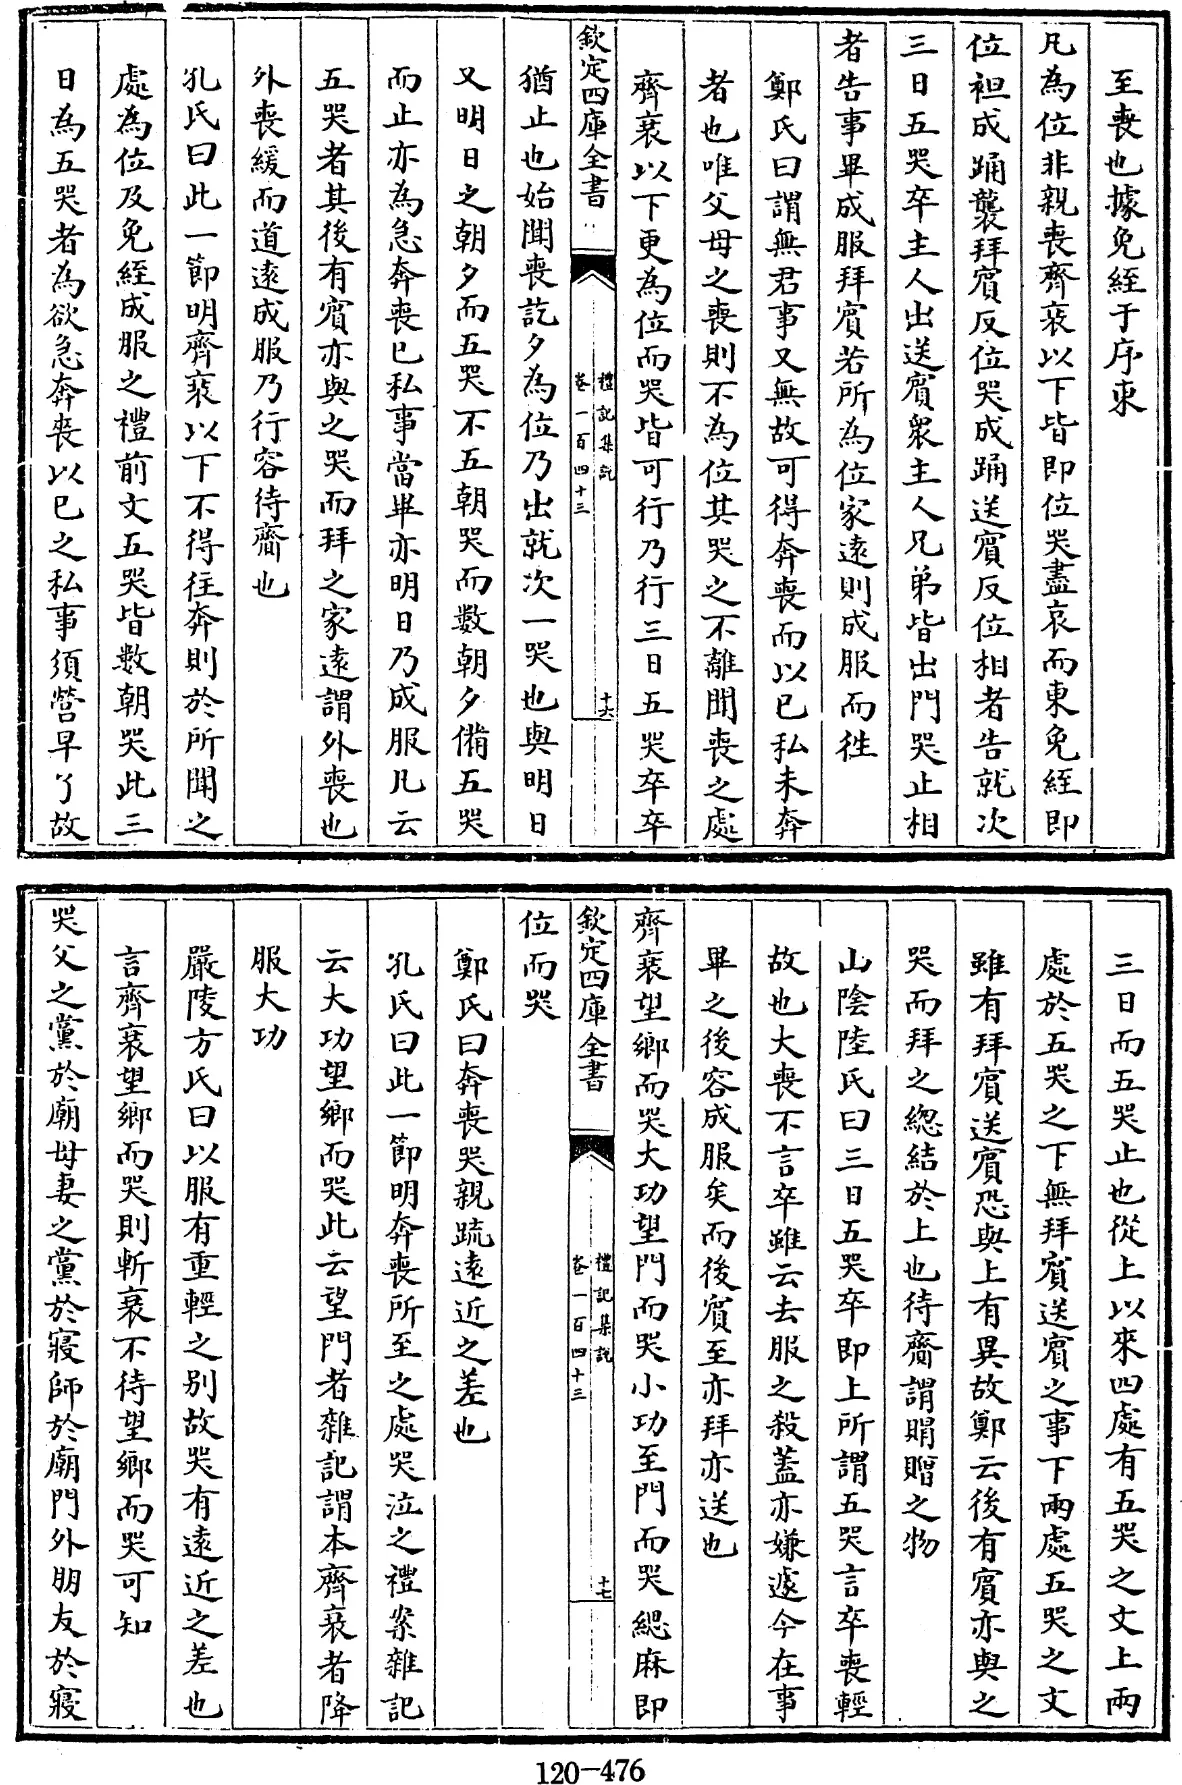 至喪也據免絰于序東
凡為位非親喪齊衰以下皆即位哭盡哀而東免絰即
位袒成踊襲拜賔反位哭成踊送賔反位相者告就次
三日五哭卒主人出送賔衆主人兄弟皆出門哭止相
者告事畢成服拜賔若所為位家遠則成服而徃
鄭氏曰謂無君事又無故可得奔喪而以已私未奔
者也唯父母之喪則不為位其哭之不離聞喪之處
齊衰以下更為位而哭皆可行乃行三日五哭卒卒
欽定四庫全書
禮記集說
卷一百四十三
十六
猶止也始聞喪訖夕為位乃出就次一哭也與明日
又明日之朝夕而五哭不五朝哭而數朝夕備五哭
而止亦為急奔喪已私事當畢亦明日乃成服凡云
五哭者其後有賔亦與之哭而拜之家遠謂外喪也
外喪緩而道遠成服乃行容待齎也
孔氏曰此一節明齊衰以下不得往奔則於所聞之
處為位及免絰成服之禮前文五哭皆數朝哭此三
日為五哭者為欲急奔喪以已之私事須營早了故
三日而五哭止也從上以來四處有五哭之文上兩
處於五哭之下無拜賔送賔之事下兩處五哭之文
雖有拜賔送賔恐與上有異故鄭云後有賔亦與之
哭而拜之總結於上也待齎謂賵贈之物
山陰陸氏曰三日五哭卒即上所謂五哭言卒喪輕
故也大喪不言卒雖云去服之殺蓋亦嫌遽今在事
畢之後容成服矣而後賔至亦拜亦送也
齊衰望鄉而哭大功望門而哭小功至門而哭緦麻即
欽定四庫全書
禮記集說
卷一百四十三
十七
位而哭
鄭氏曰奔喪哭親疏遠近之差也
孔氏曰此一節明奔喪所至之處哭泣之禮案雜記
云大功望鄉而哭此云望門者雜記謂本齊衰者降
服大功
嚴陵方氏曰以服有重輕之别故哭有遠近之差也
言齊衰望鄉而哭則斬衰不待望鄉而哭可知
哭父之黨於廟母妻之黨於寢師於廟門外朋友於寢
120-476